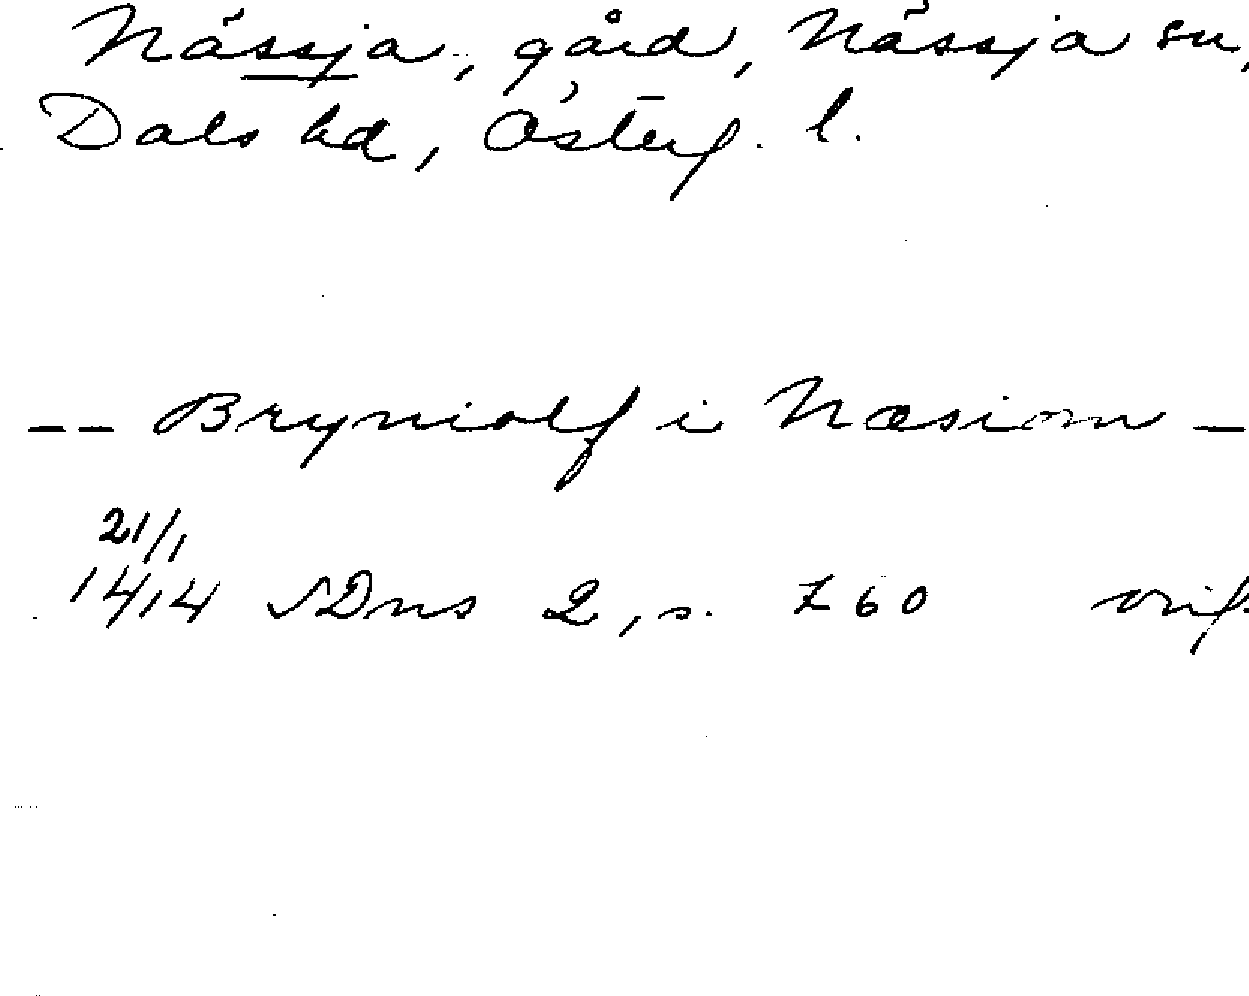 Nässja, gård, Nässja sn,
Dals hd, Österg. l.
-- Bryniolf i Næsiom -
21/1
1414 SDns 2, s. 760 orig